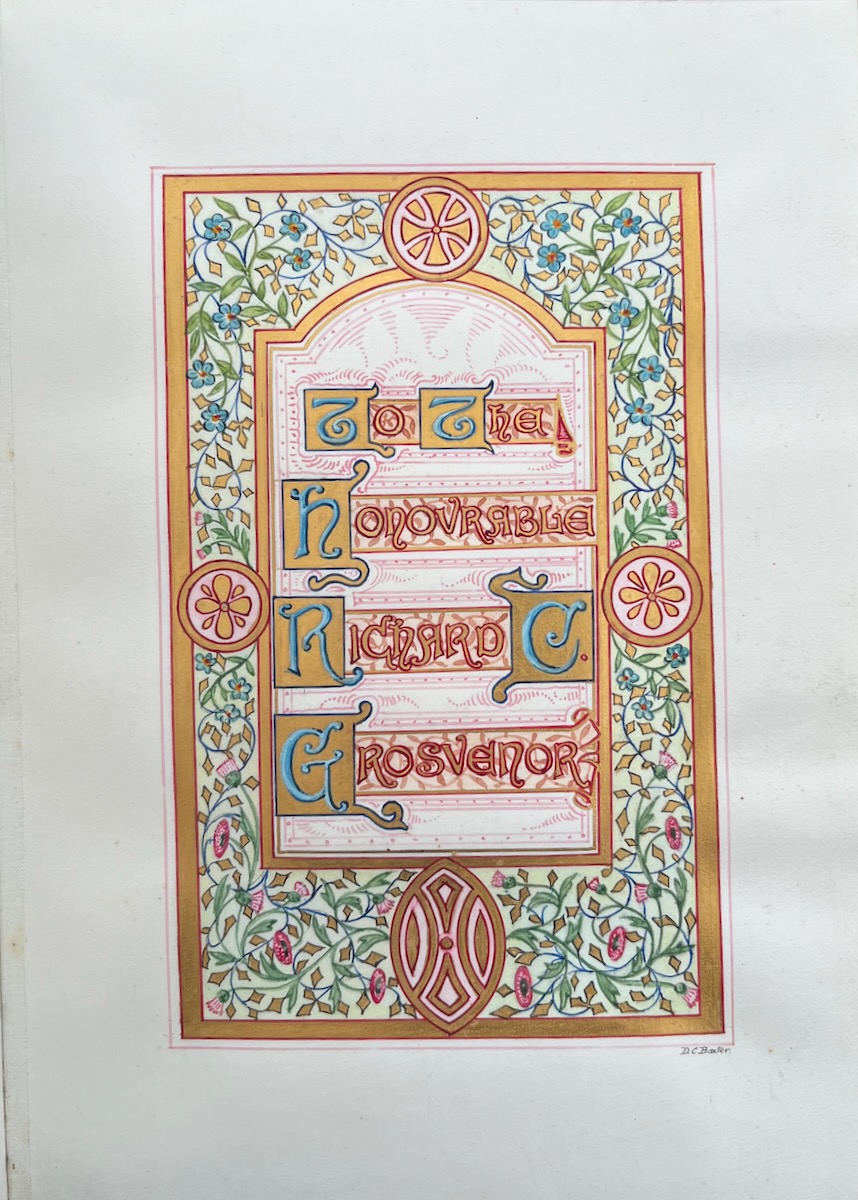 To The
Honourable
Richard C.
Grosvenor,
D.C. Baxter.